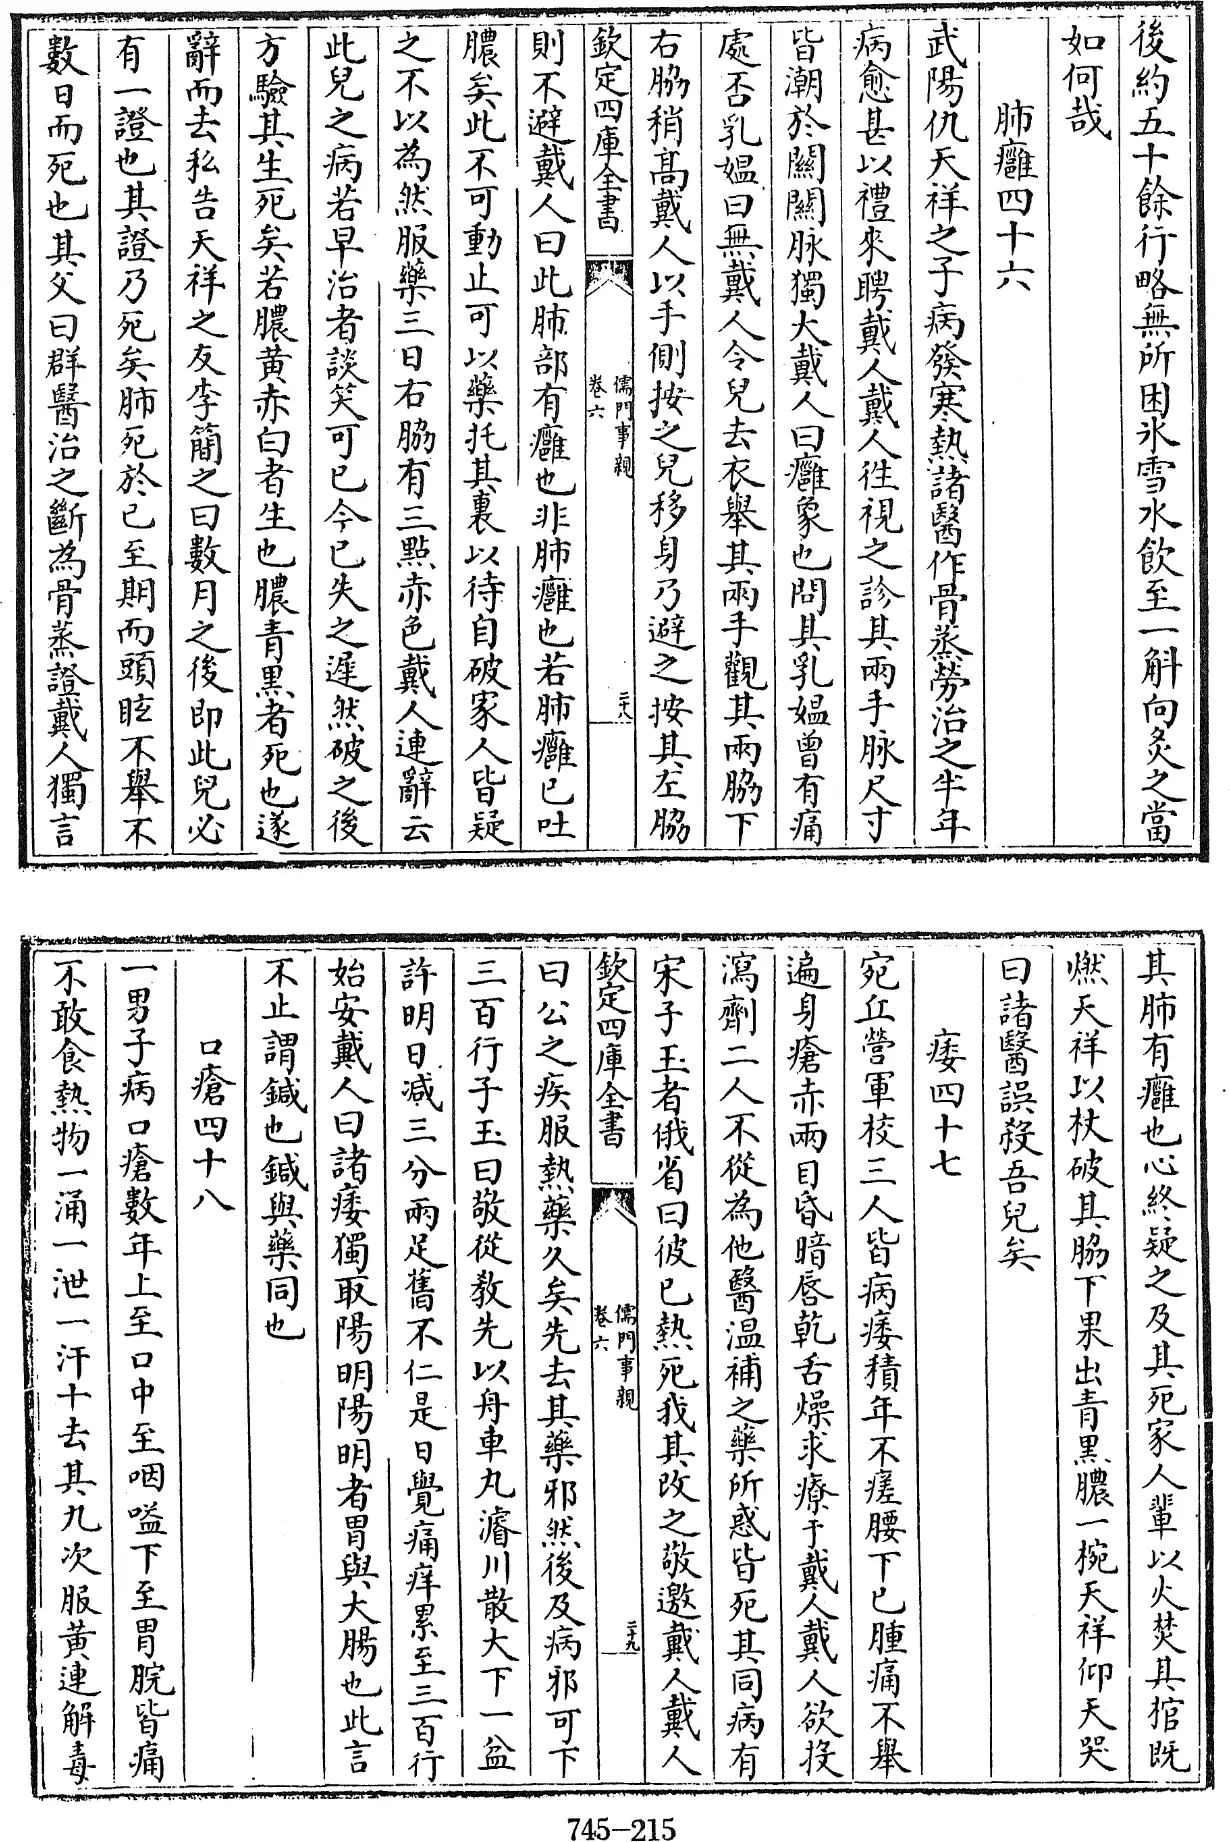 後約五十餘行略無所困氷雪水飲至一斛向灸之當
如何哉
肺癰四十六
武陽仇天祥之子病發寒熱諸醫作骨蒸勞治之半年
病愈甚以禮來聘戴人戴人往視之診其兩手脉尺寸
皆潮於關關脉獨大戴人曰癰象也問其乳媼曾有痛
處否乳媼曰無戴人令兒去衣舉其兩手觀其兩脇下
右脇稍髙戴人以手側按之兒移身乃避之按其左脇
欽定四庫全書
儒門事親
卷六
二十八
則不避戴人曰此肺部有癰也非肺癰也若肺癰已吐
膿矣此不可動止可以藥托其裏以待自破家人皆疑
之不以為然服藥三日右脇有三點赤色戴人連辭云
此兒之病若早治者談笑可已今已失之遲然破之後
方驗其生死矣若膿黄赤白者生也膿青黒者死也遂
辭而去私告天祥之友李簡之曰數月之後即此兒必
有一證也其證乃死矣肺死於已至期而頭眩不舉不
數日而死也其父曰群醫治之斷為骨蒸證戴人獨言
其肺有癰也心終疑之及其死家人輩以火焚其棺既
燃天祥以杖破其脇下果出青黒膿一椀天祥仰天哭
曰諸醫誤殺吾兒矣
痿四十七
宛丘營軍校三人皆病痿積年不瘥腰下已腫痛不舉
遍身瘡赤兩目昏暗唇乾舌燥求療于戴人戴人欲投
瀉劑二人不從為他醫温補之藥所惑皆死其同病有
宋子玉者俄省曰彼已熱死我其改之敬邀戴人戴人
欽定四庫全書
儒門事親
卷六
二十九
曰公之疾服熱藥久矣先去其藥邪然後及病邪可下
三百行子玉曰敬從教先以舟車丸濬川散大下一盆
許明日減三分兩足舊不仁是日覺痛痒累至三百行
始安戴人曰諸痿獨取陽明陽明者胃與大腸也此言
不止謂鍼也鍼與藥同也
口瘡四十八
一男子病口瘡數年上至口中至咽嗌下至胃脘皆痛
不敢食熱物一涌一泄一汗十去其九次服黄連解毒
745-215